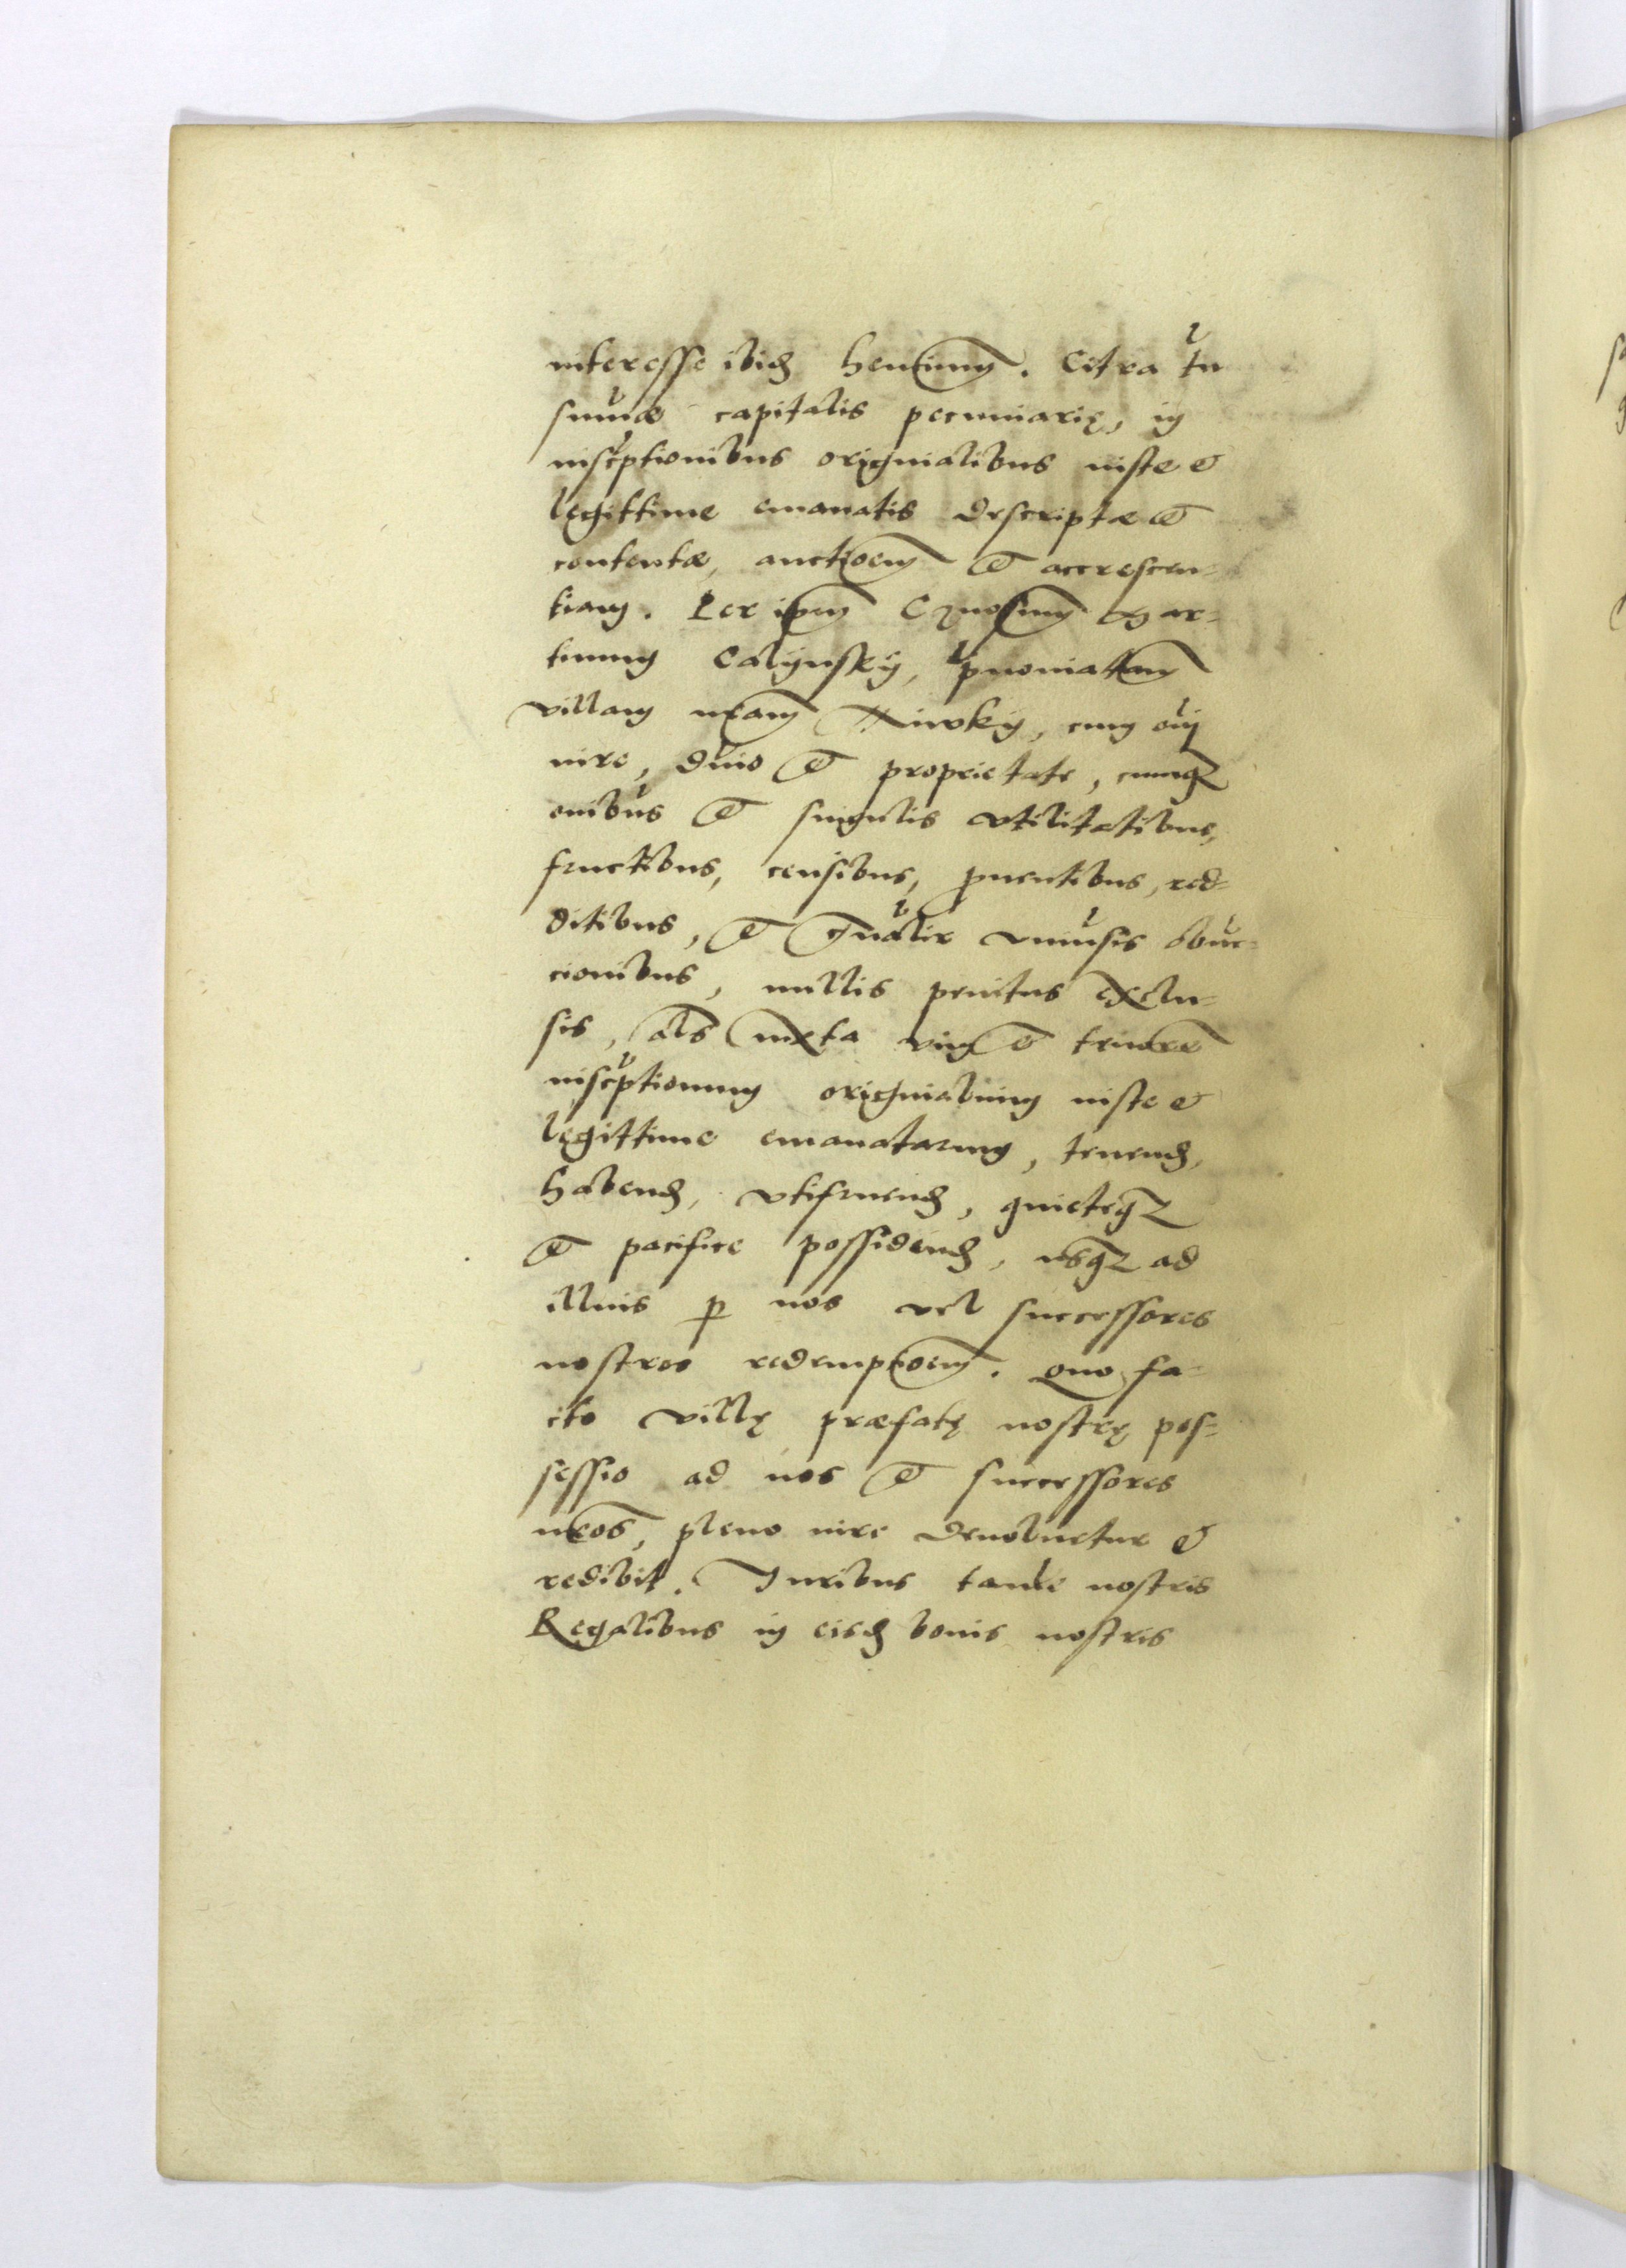 interesse ibid. hentium. Citra tn
summæ capitalis pecuniarię, in
inscptionibus originalibus iuste et
legittime emanatis descriptæ et
contentæ, auctioem et accrescen-
tiam. Per ipm Gnosum Mar-
tinum Calynsky, pnominatam
villam nram Kiwky, cum oi
iure, dnio et proprietate, cumq3
onibus et singulis vtilitatibus,
fructibus, censibus, puentibus, red-
ditibus, et gnalir vniusis obuen-
cionibus, nullis penitus exclu-
sis, als iuxta vim et tenore
inscptionum originalium iuste et
legittime emanatarum, tenend,
habend, vtifruend, quieteq3
et pacifice possidend, usq3 ad
illius p nos vel successores
nostros redemptioem. Quo fa-
cto villę præfatę nostrę pos-
sessio ad nos et successores
nros, pleno iure deuoluetur et
redibit. Iuribus tamen nostris
Regalibus in eisd bonis nostris